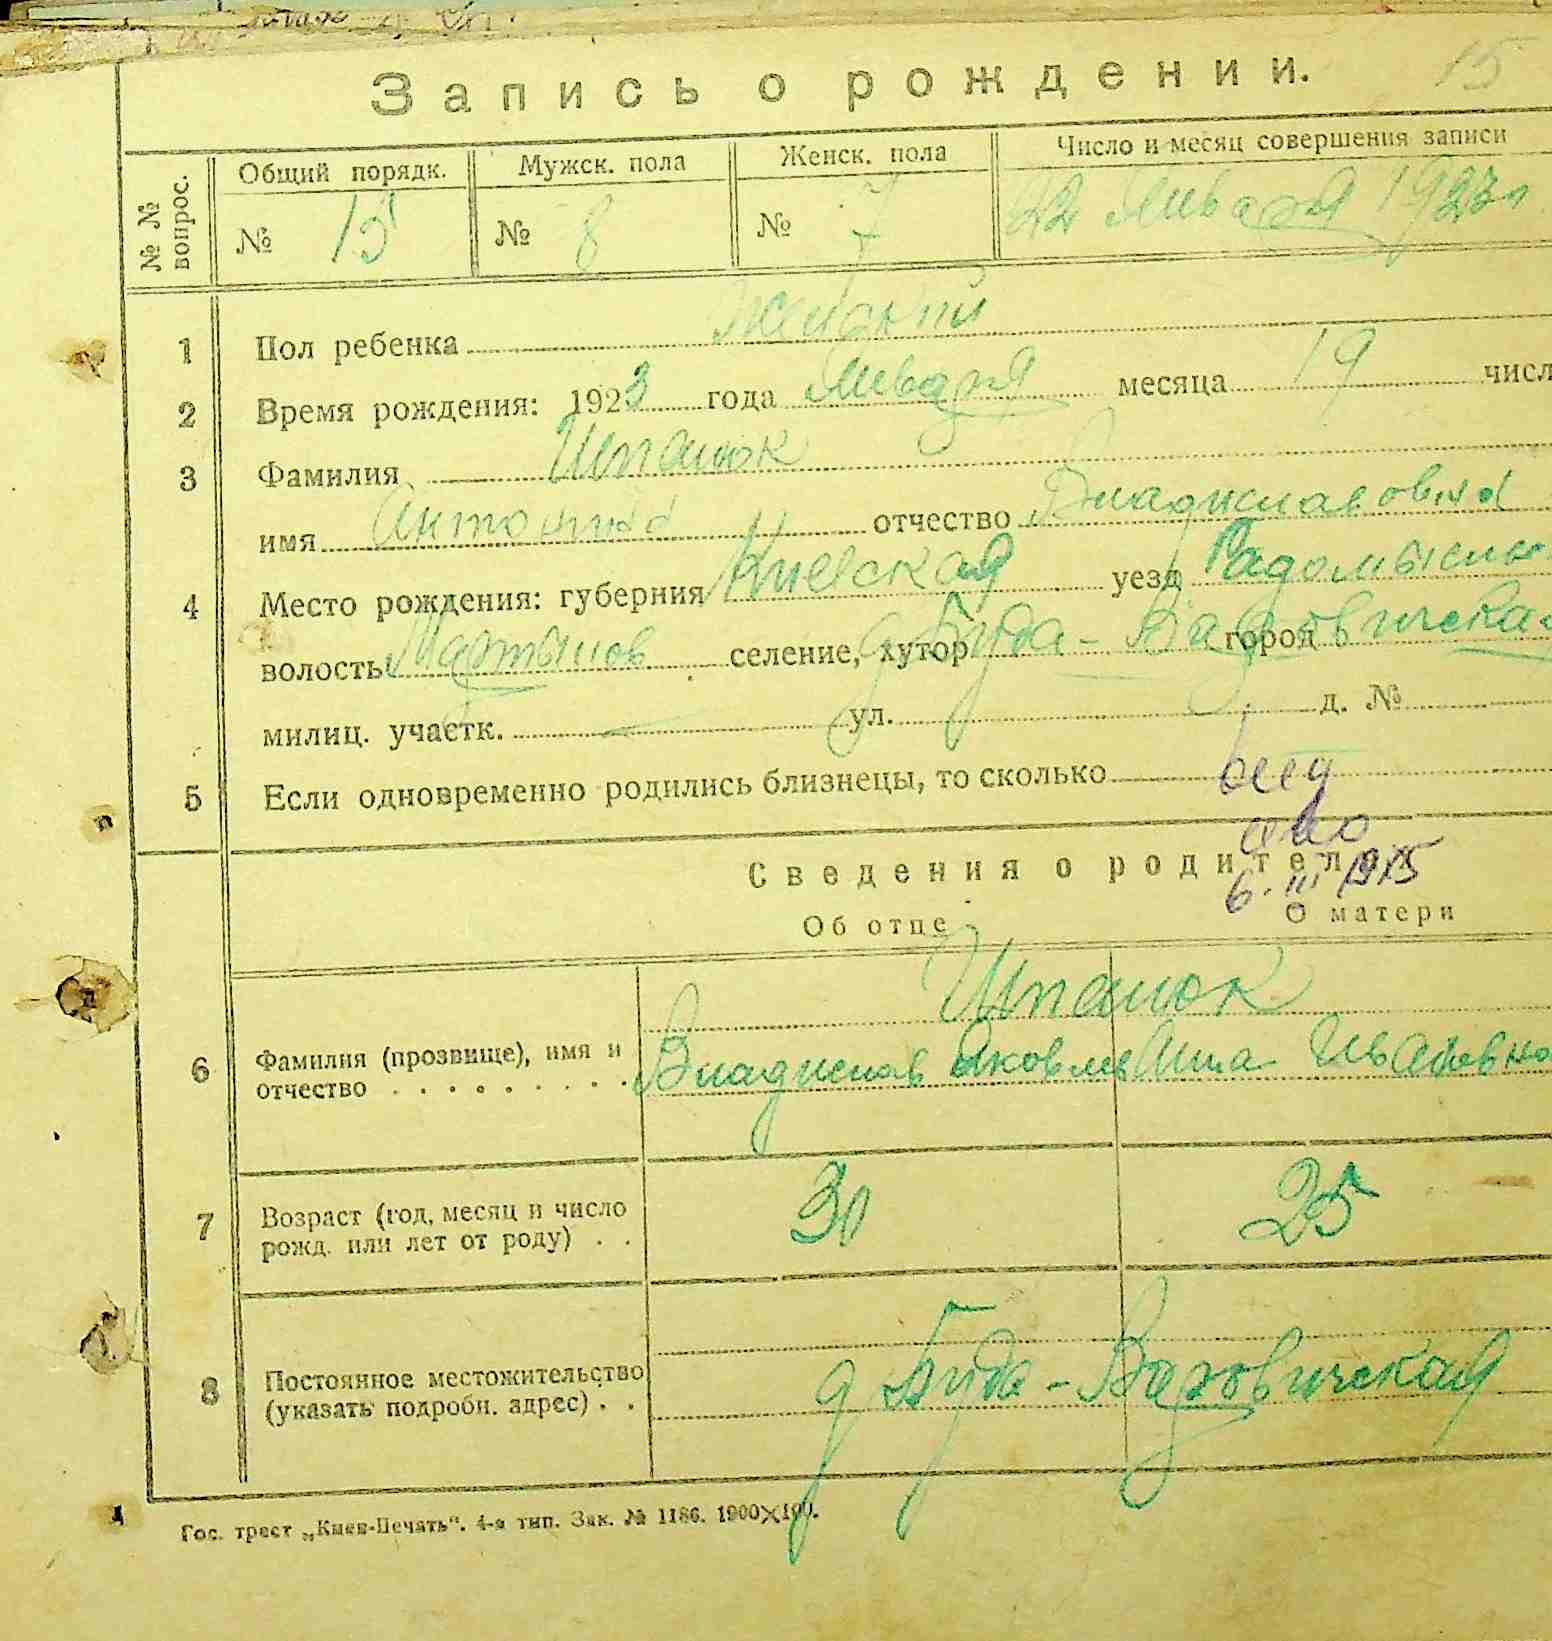 15
Запись о рождении.
№ № вопрос.
Общий порядк. Мужск. пола Женск. пола Число и месяц совершения записи
№ 15 № 8 № 7 22 Января 1923 г
1 Пол ребенка Женский
2 Время рождения: 1923 года Января месяца 19 числ
3 Фамилия Шпанюк
имя Антонина отчество Владиславовна
4 Место рождения: губерния Киевская уезд Радомысльс
волость Мартынов селение, хутор д Буда-Варовическая город
милиц. участк. ул. д. №
5 Если одновременно родились близнецы, то сколько
6. III 1975
Сведения о родителях
Об отце О матери
Шпанюк
6 Фамилия (прозвище), имя и отчество Владислав Яковлев Анна Ивановна
7 Возраст (год, месяц и число рожд. или лет от роду) 30 25
8 Постоянное местожительство (указать подробн. адрес) д Буда-Варовическая
Гос. трест „Киев-Печать“. 4-я тип. Зак. № 1186. 1900×100.